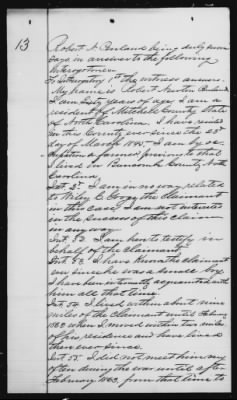 13
Robert N Penland being duly sworn
says in answer to the following
Interrogatories.
To Interrogatory 1st the witness answers.
My name is Robert Newton Penland
I am sixty years of age I am a
resident of Mitchell County State
of North Carolina. I have resided
in this County ever since the 25th
day of March 1845. I am by oc-
cupation a farmer, previous to that
I lived in Buncombe County North
Carolina.
Int. 2d. I am in no way related
to Wiley the claimant
in this case. I am not interested
in the success of this claim
in any way.
Int. 52. I am here to testify in
behalf of the claimant.
Int. 53. I have known the claimant
ever since he was a small boy
I have been intimately acquainted with
him all the time.
Int. 54. I lived within about nine
miles of the claimant until February
1863 when I moved within two miles
of his residence and have lived
there ever since.
Int. 55. I did not meet him very
often during the war until after
February 1863, from that time to